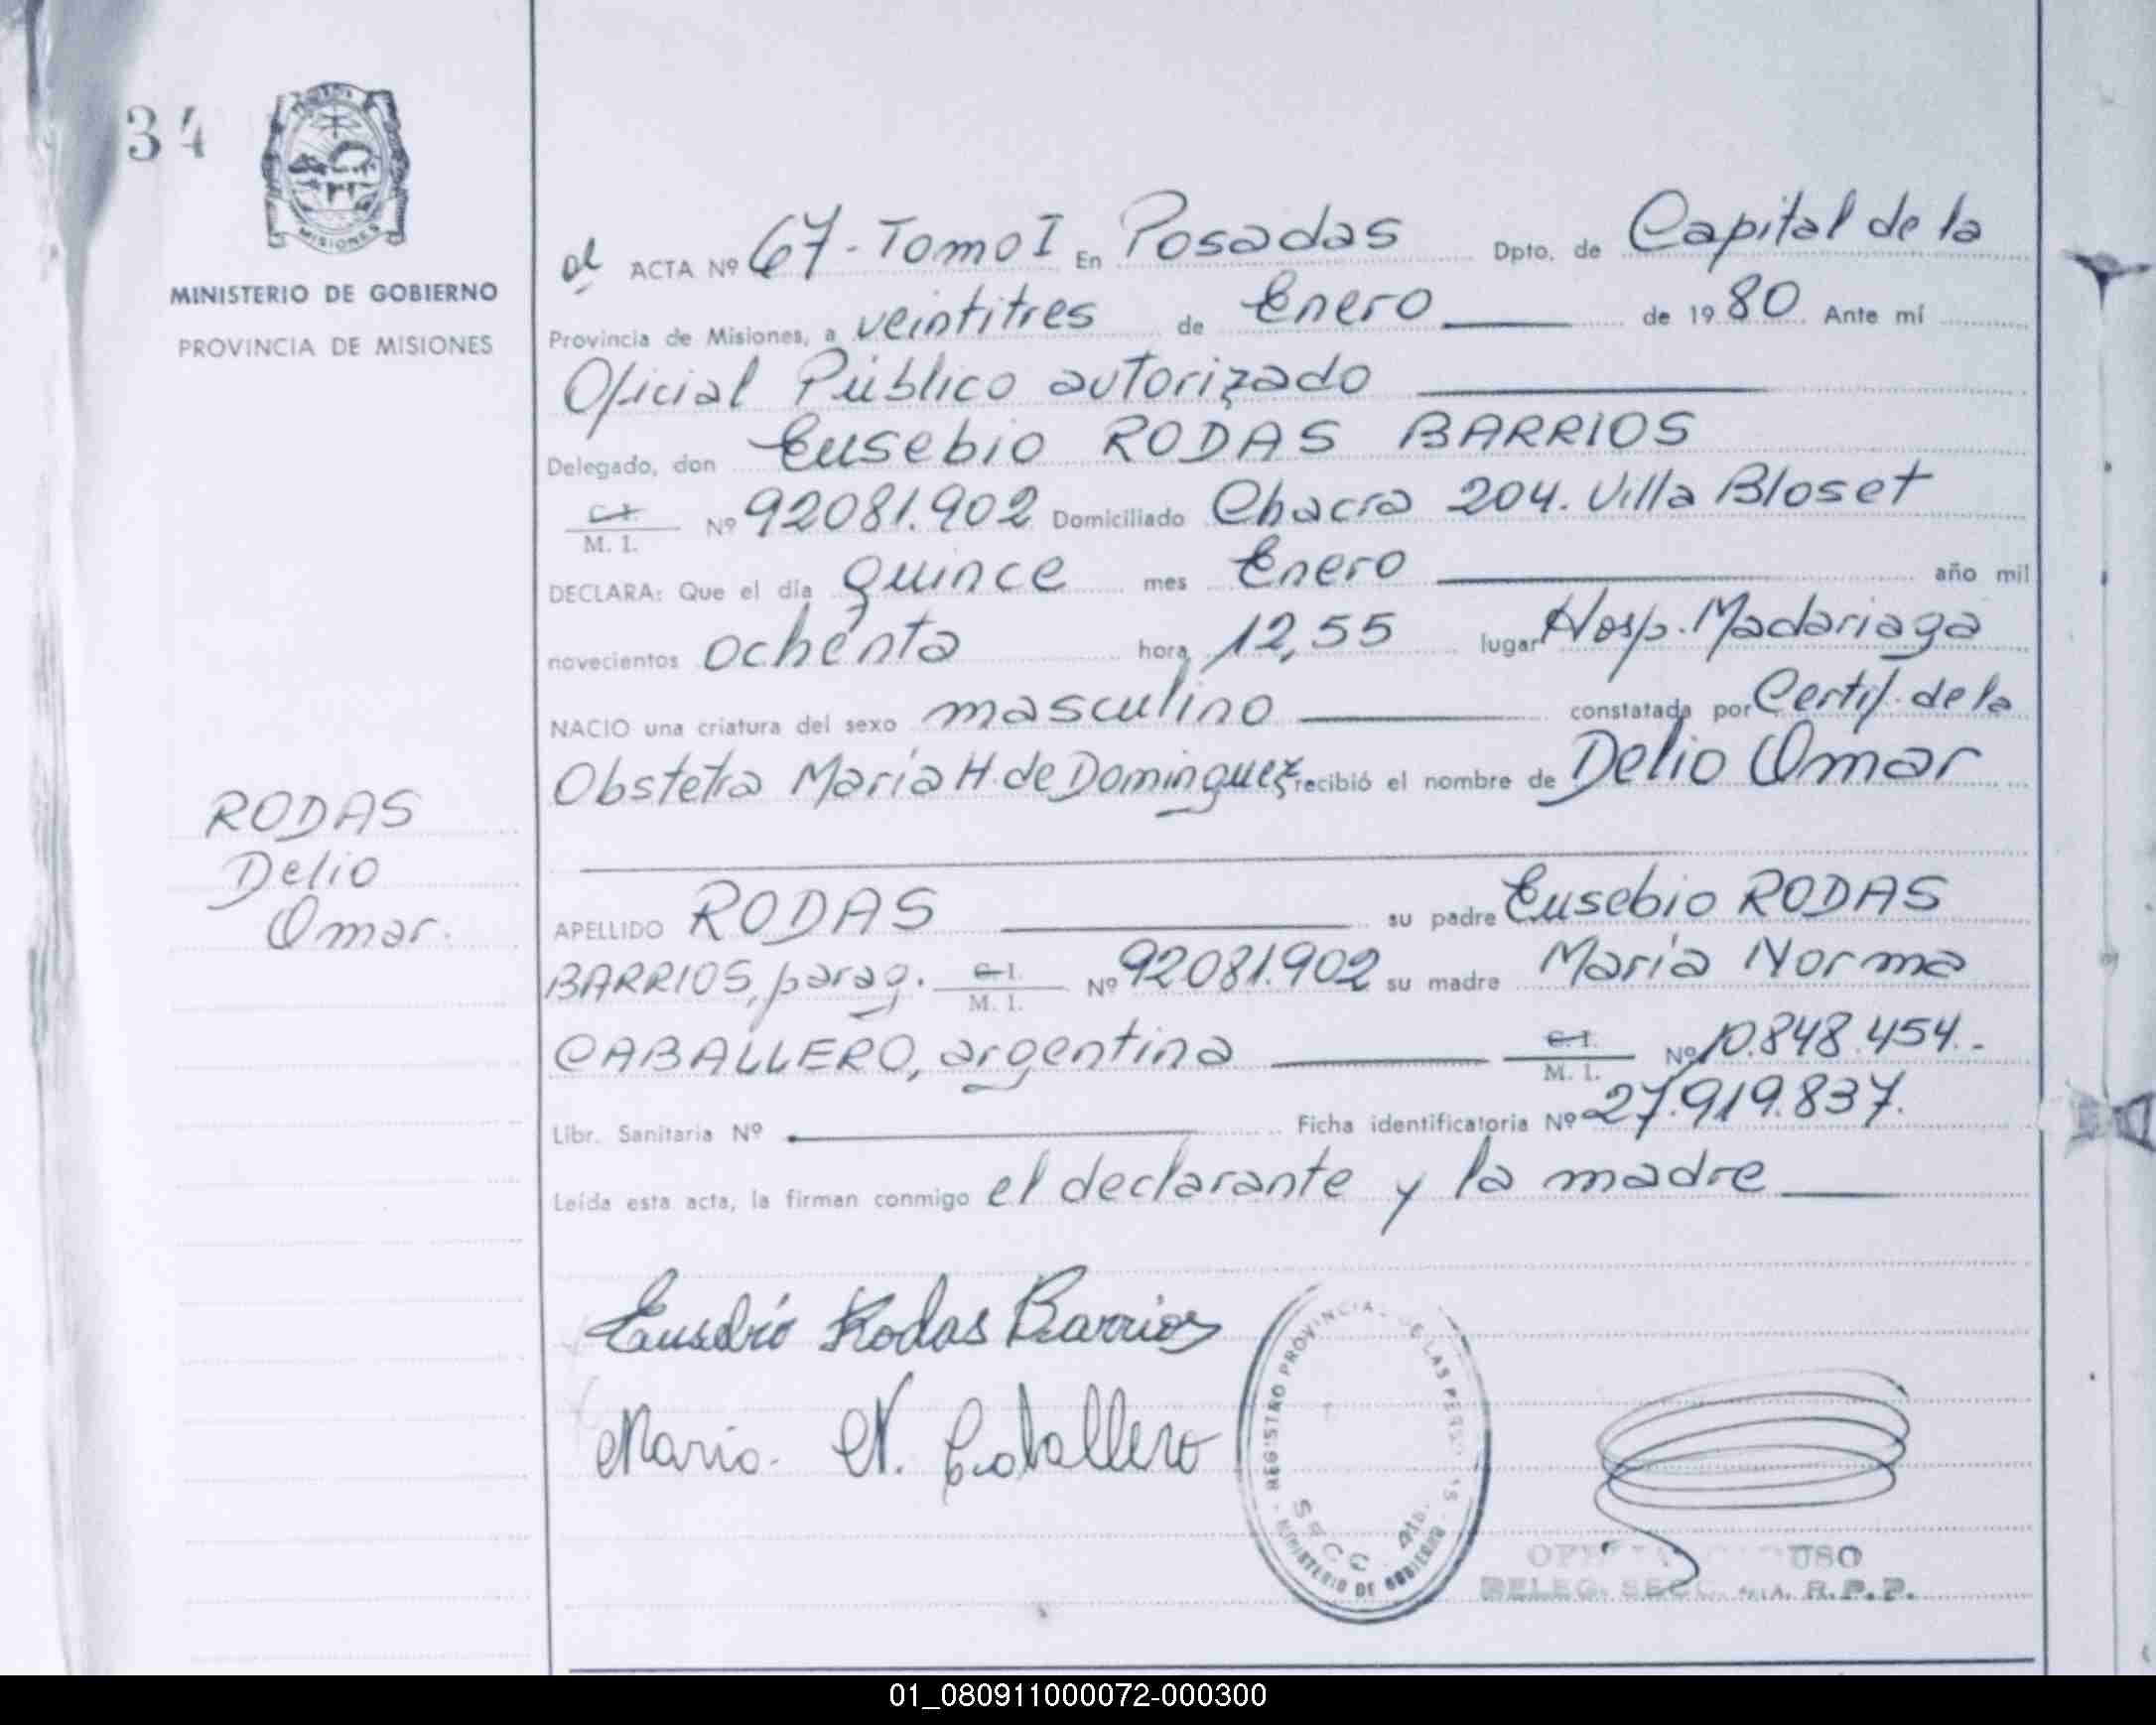 34
MISIONES
MINISTERIO DE GOBIERNO
PROVINCIA DE MISIONES
RODAS
Delio
Omar.
al ACTA Nº 67-Tomo I En Posadas Dpto. de Capital de la
Provincia de Misiones, a veintitres de Enero de 1980 Ante mí
Oficial Público autorizado
Delegado, don Eusebio RODAS BARRIOS
C.I. M. I. Nº 92081.902 Domiciliado Chacra 204. Villa Bloset
DECLARA: Que el día quince mes Enero año mil
novecientos ochenta hora 12,55 lugar Hosp. Madariaga
NACIO una criatura del sexo masculino constatada por Certif. de la
Obstetra María H. de Dominguez recibió el nombre de Delio Omar
APELLIDO RODAS su padre Eusebio RODAS
BARRIOS, parag. C.I. M. I. Nº 92081.902 su madre María Norma
CABALLERO, argentina C.I. M. I. Nº 10.848.454.-
Libr. Sanitaria Nº Ficha identificatoria Nº 27.919.837.
Leída esta acta, la firman conmigo el declarante y la madre
Eusebio Rodas Barrios
Maria. N. Caballero
REGISTRO PROVINCIAL DE LAS PERSONAS
SECC. 4ta.
MINISTERIO DE GOBIERNO
DELEG. SECC. 4ta. R.P.P.
01_080911000072-000300